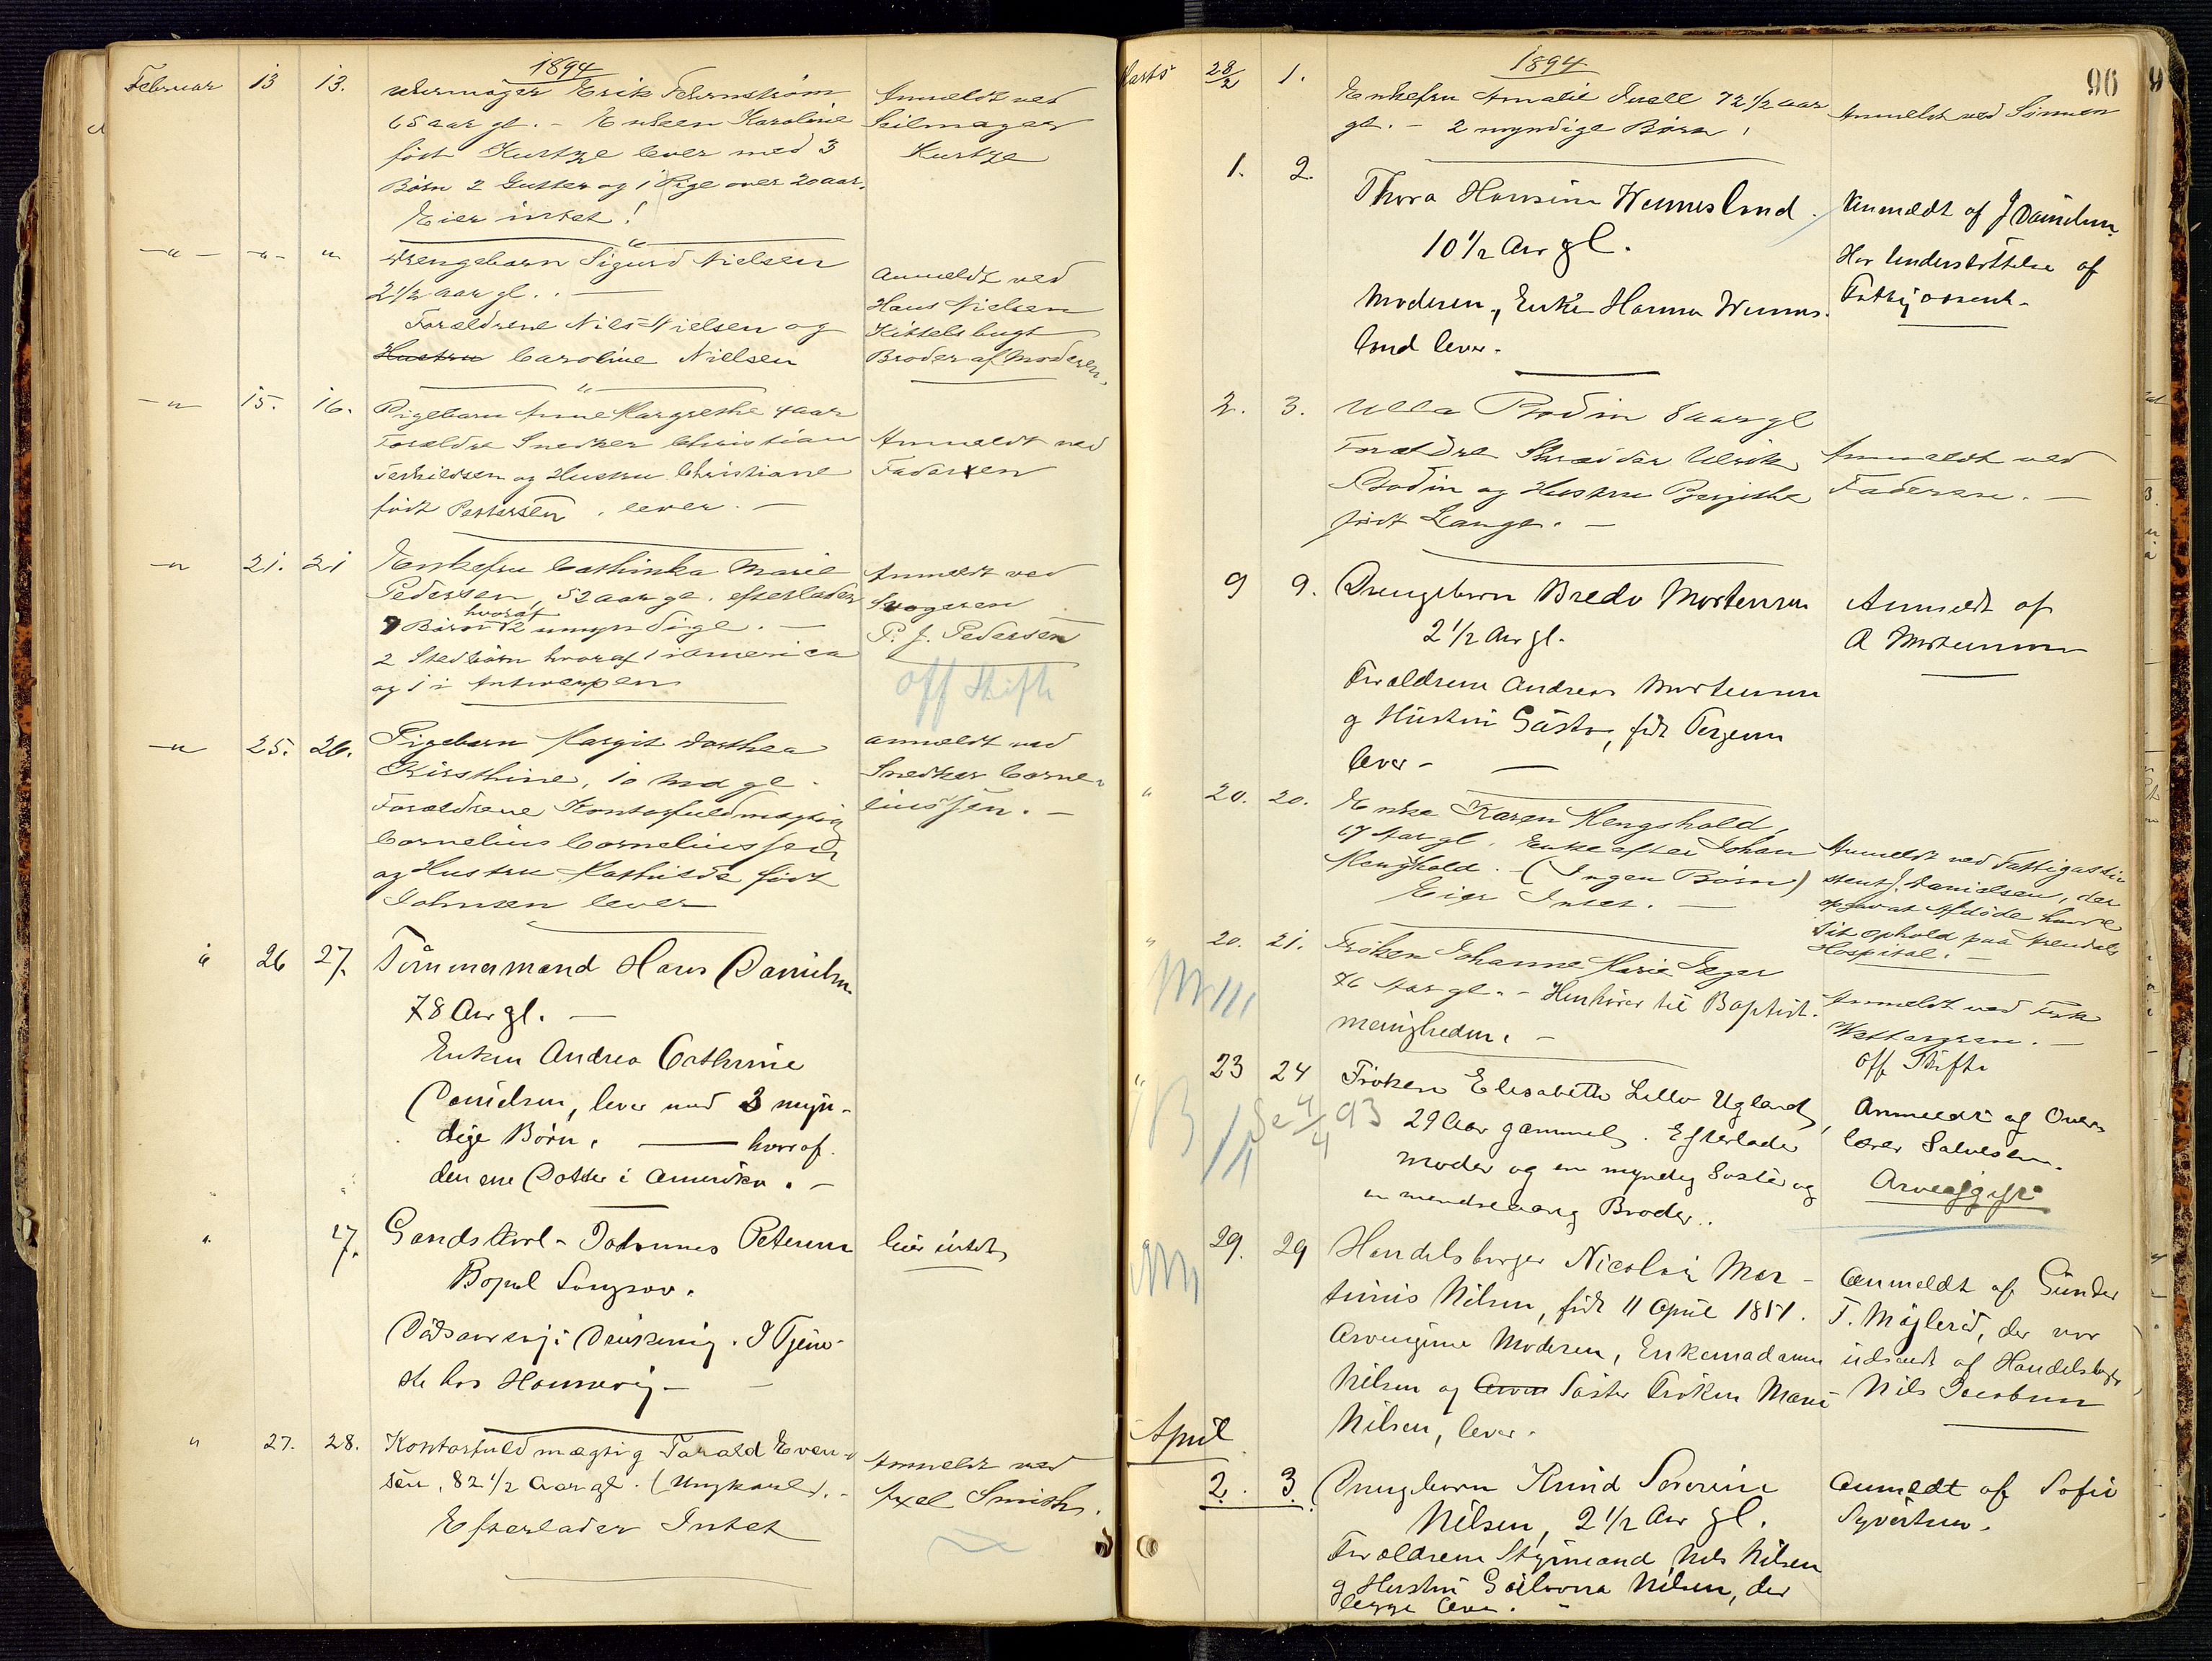 1894
Februar 13 13. Uhrmager Erik Fehrnstrøm
65 aar gl. - Enken Karoline
født Kurtze lever med 3
Børn 2 Gutter og 1 Pige over 20 aar.
Eier intet!
Anmeldt ved
Seilmager
Kurtze
-"- -"- " Drengebarn Sigurd Nielsen
2 1/2 aar gl. -
Forældrene Nils Nielsen og
Hustru Caroline Nielsen
Anmeldt ved
Hans Nielsen
Kittelsbugt
Broder af Moderen.
-" 15. 16. Pigebarn Anne Margrethe 4 aar
Forældre Snedker Christian
Terkildsen og Hustru Christiane
født Petersen, lever. -
Anmeldt ved
Faderen
-" 21. 21 Enkefru Cathinka Marie
Pedersen, 52 aar gl. efterlader
hvoraf
7 Børn 2 umyndige. -
2 Stedbørn hvoraf 1 i America
og 1 i Antwerpen
Anmeldt ved
Svogeren
P. J. Pedersen
off Skifte
-" 25. 26. Pigebarn Margit Dorthea
Kirsthine, 10 Md gl.
Forældrene Kontorfuldmægtig
Cornelius Corneliussen
og Hustru Mathilde født
Johnsen lever
anmeldt ved
Snedker Corne-
liussen. -
" 26 27. Tømmermand Hans Danielsen
78 Aar gl. -
Enken Andrea Cathrine
Danielsen, lever med 3 myn-
dige Børn, - hvoraf
den ene Datter i Amerika. -
" 17. Gaardskarl Johannes Petersen
Bopæl Songesav.
Dødsaarsag: Drukning. I Tjene-
ste hos Homevig -
Eier intet
" 27. 28. Kontorfuldmægtig Tarald Even-
sen, 82 1/2 Aar gl. (Ungkarl). -
Efterlader Intet
Anmeldt ved
Axel Smith.
1894
96
Marts 28/2 1. Enkefru Amalie Juell 72 1/2 aar
gl. - 2 myndige Børn,
Anmeldt ved Sønnen
1. 2. Thora Hansine Wennesland.
10 1/2 Aar gl.
Moderen, Enke Hanna Wennes-
land lever.
Anmeldt af J Danielsen
Har Understøttelse af
Fattigvæsenet.
2. 3. Ulla Bodin 8 aar gl
Forældre Skrædder Ulrik
Bodin og Hustru Birgithe
født Lange. -
Anmeldt ved
Faderen. -
9 9. Drengebarn Bredo Mortensen
2 1/2 Aar gl.
Forældrene Andreas Mortensen
og Hustru Gusta, født Terjesen
lever -
Anmeldt af
A Mortensen
" 20. 20. Enke Karen Mengshold,
67 Aar gl. Enke efter Johan
Mengshold. - (Ingen Børn)
Eier Intet. -
Anmeldt ved Fattigassi-
stent J. Danielsen, der
opgav at Afdøde havde
sit ophold paa Arendals
Hospital. -
" 20. 21. Frøken Johanne Marie Jæger
76 Aar gl. - Henhører til Baptist-
menigheden. -
Anmeldt ved Frk
Wettergren. -
off Skifte
" 23 24 Frøken Elisabeth Lello Ugland,
29 Aar gammel. Efterlader
Moder og en myndig Søster og
en mindreaarig Broder.
Se 4/4 93
Anmeldt af Over-
lærer Salvesen.
Arveafgift
29. 29 Handelsborger Nicolai Mar-
tinius Nilsen, født 11 April 1851.
Arvingerne Moderen, Enkemadame
Nilsen og Søster Frøken Marie
Nilsen, lever.
Anmeldt af Gunder
T. Møglerid, der var
udsendt af Handelsborger
Nils Jacobsen
April
2. 3. Drengebarn Knud Severin
Nilsen, 2 1/2 Aar gl.
Forældrene Styrmand Nils Nilsen
og Hustru Nilsen, der
begge lever. -
Anmeldt af Sofie
Syvertsen.